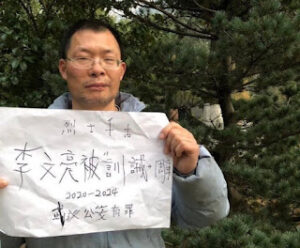 烈士千古
李文亮被"訓誡"周
2020-2024
武汉公安有罪